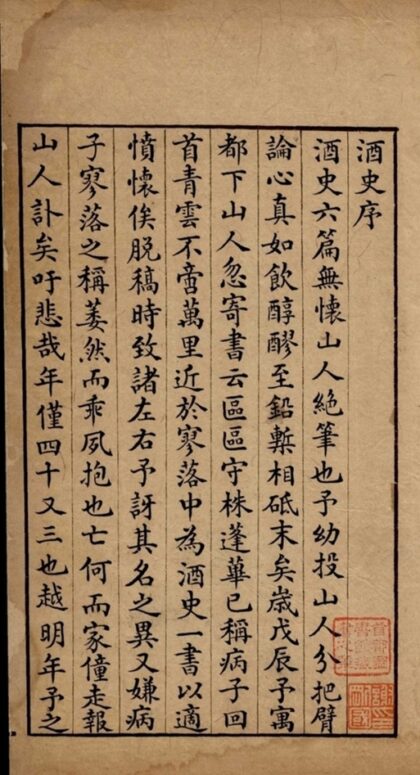 酒史序
酒史六篇無懷山人絶筆也予幼投山人分把臂
論心真如飲醇醪至鉛槧相砥末矣歲戊辰予寓
都下山人忽寄書云區區守株蓬蓽已稱病子回
首青雲不啻萬里近於寥落中為酒史一書以適
憤懷俟脱稿時致諸左右予訝其名之異又嫌病
子寥落之稱萎然而乖夙抱也亡何而家僮走報
山人訃矣吁悲哉年僅四十又三也越明年予之